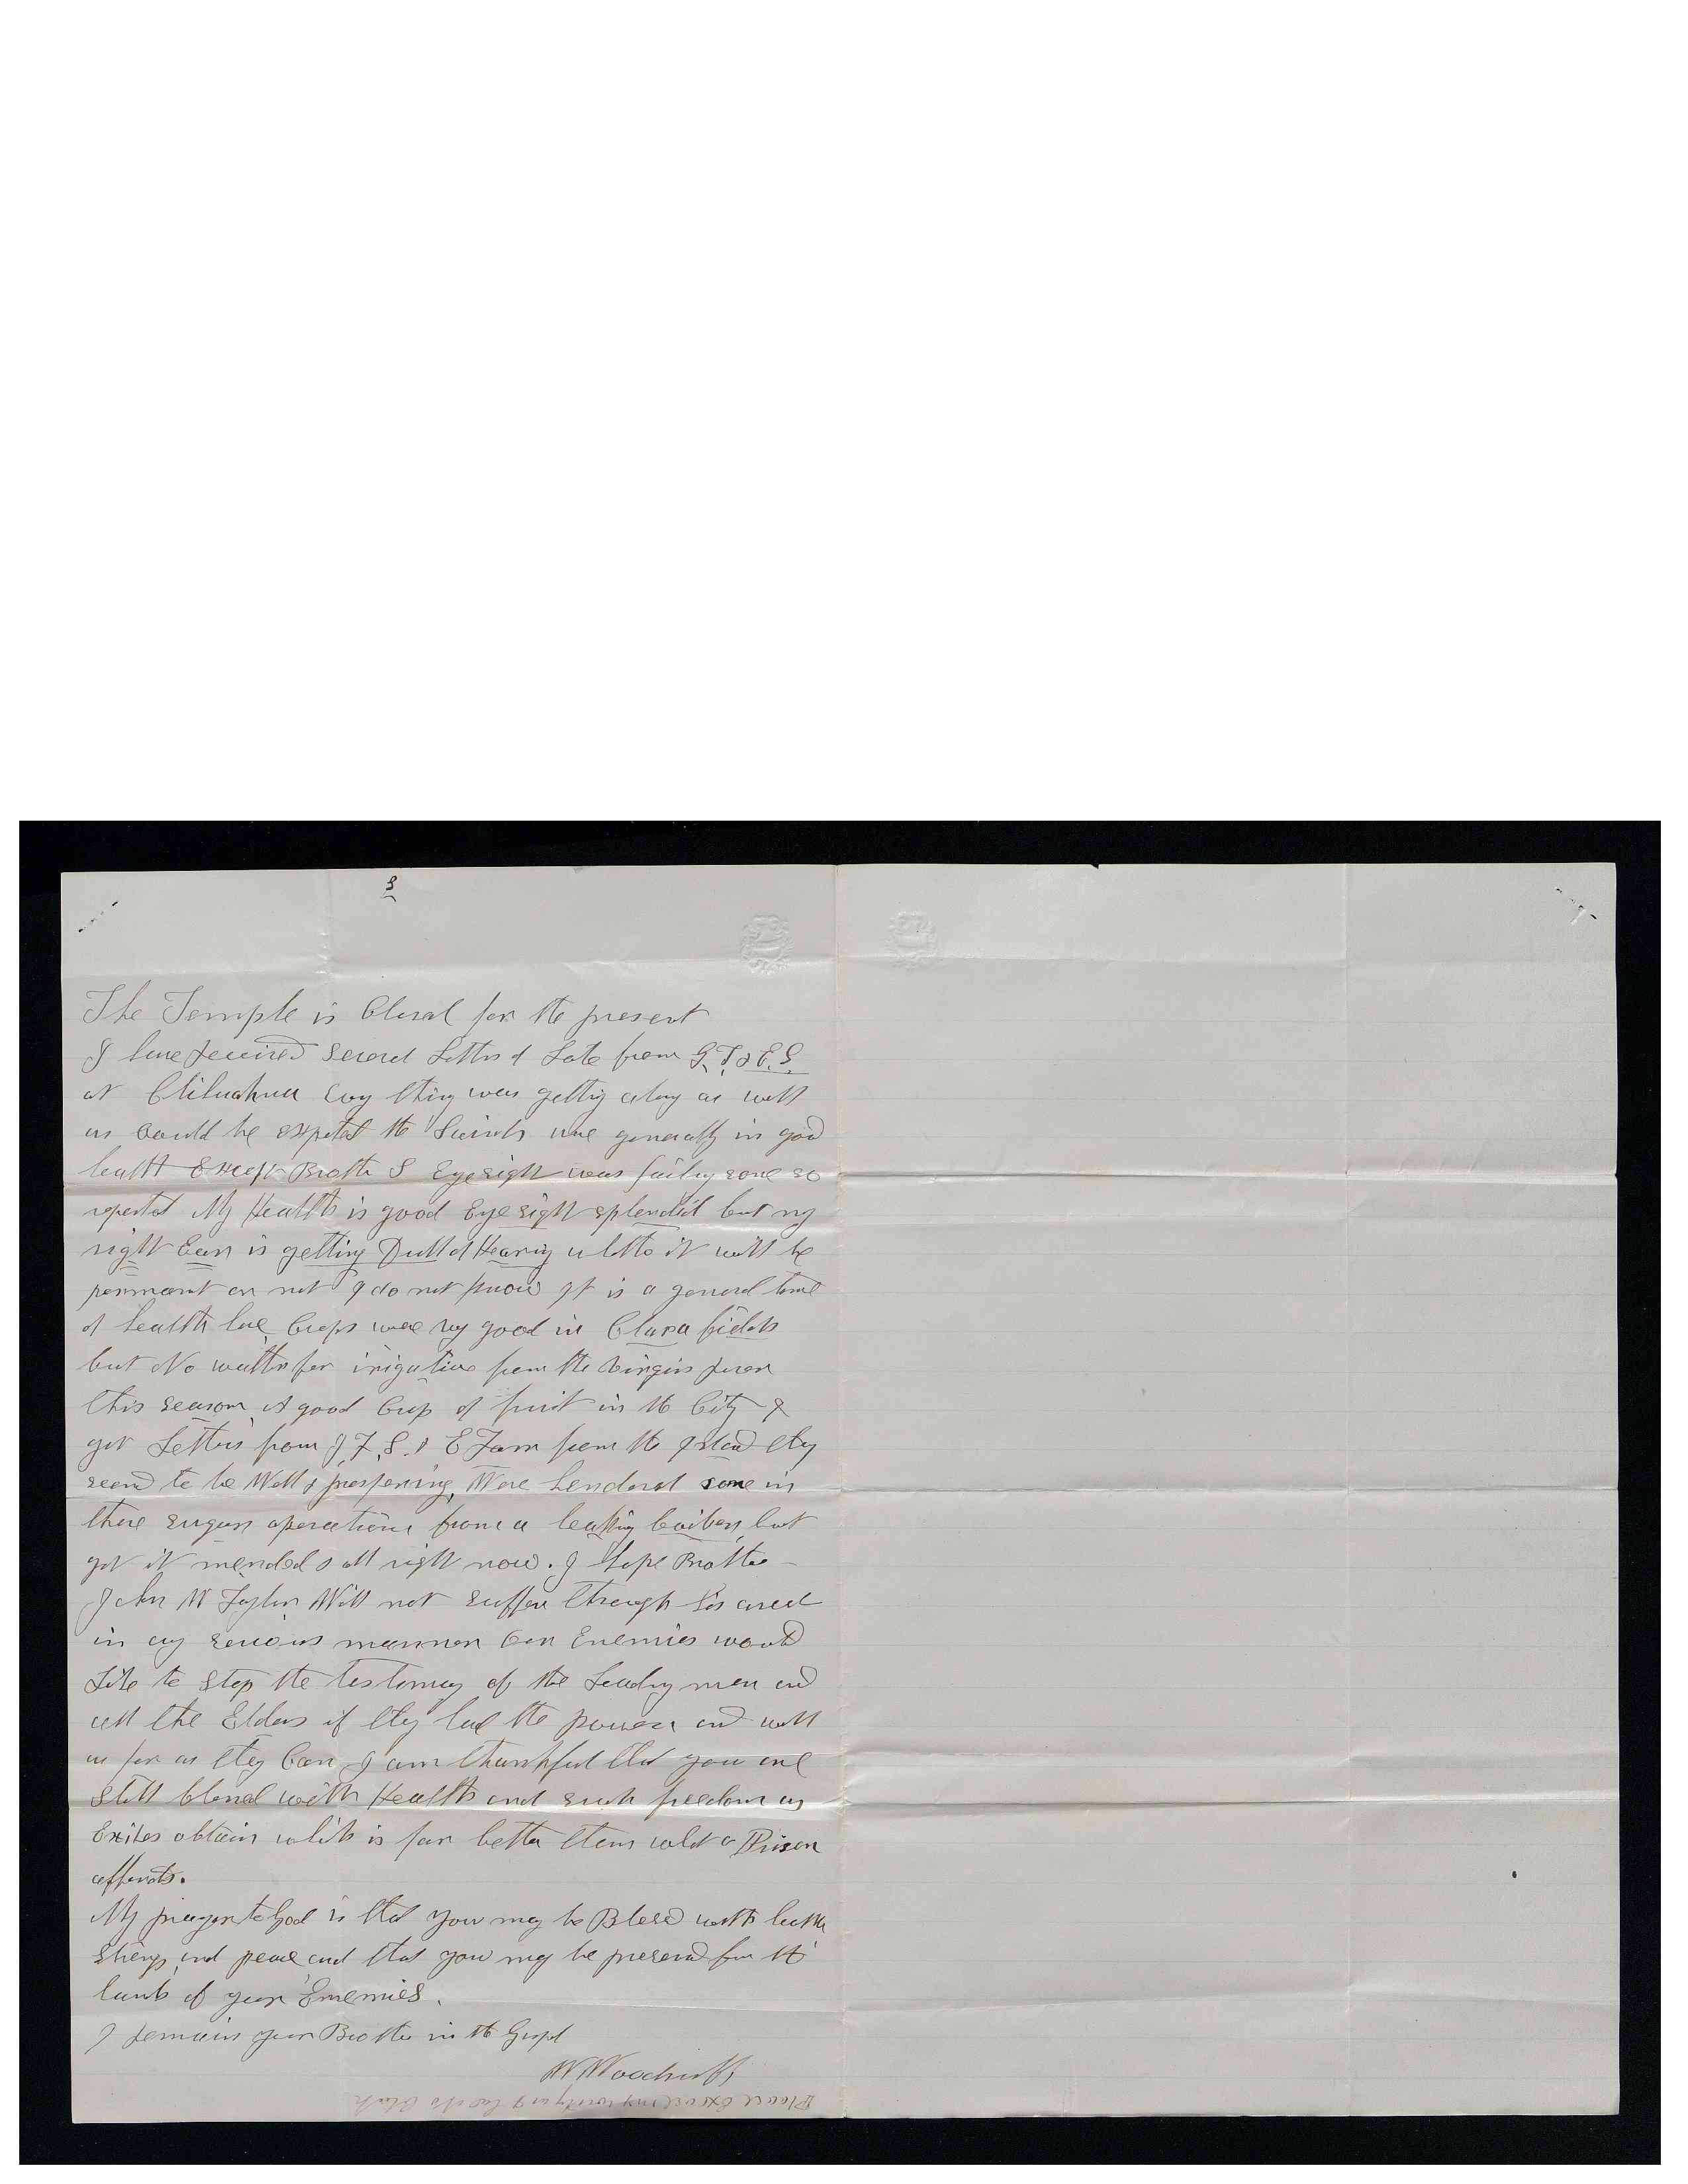 3
The Temple is Closed for the present
I have received several Letters of Late from G. T. & E. S.
at Chihuahua evry thing was getting along as well
as could be expected the Saints were generally in good
health Except Brother S Eyesight was failing some so
reported My Health is good Eye sight splendid but my
right Ear is getting Dull of Hearing whether it will be
permanent or not I do not know It is a general time
of health here Crops were very good in Clara fields
but No water for irigation from the virgin river
this season A good Crop of fruit in the City I
got Letters from J. F. S. & E Farr from the Island they
seemd to be Well & prospering, Were hendered some in
there sugar operations from a leaking boiler, but
got it mended & all right now. I Hope Brother
John W Taylor Will not suffer through his arest
in any serious manner Our Enemies would
Like to stop the testimony of the Leading men and
all the Elders if they had the power and will
as far as they Can I am thankful that you are
still blessed with Health and such freedom as
Exiles obtain which is far better than what a Prison
affords.
My prayer to God is that you may be Blessd with health
strength and peace and that you may be preservd from the
hands of your Enemies.
I remain your Brother in the Gospel
W Woodruff
Please Excuse my writing as I had to